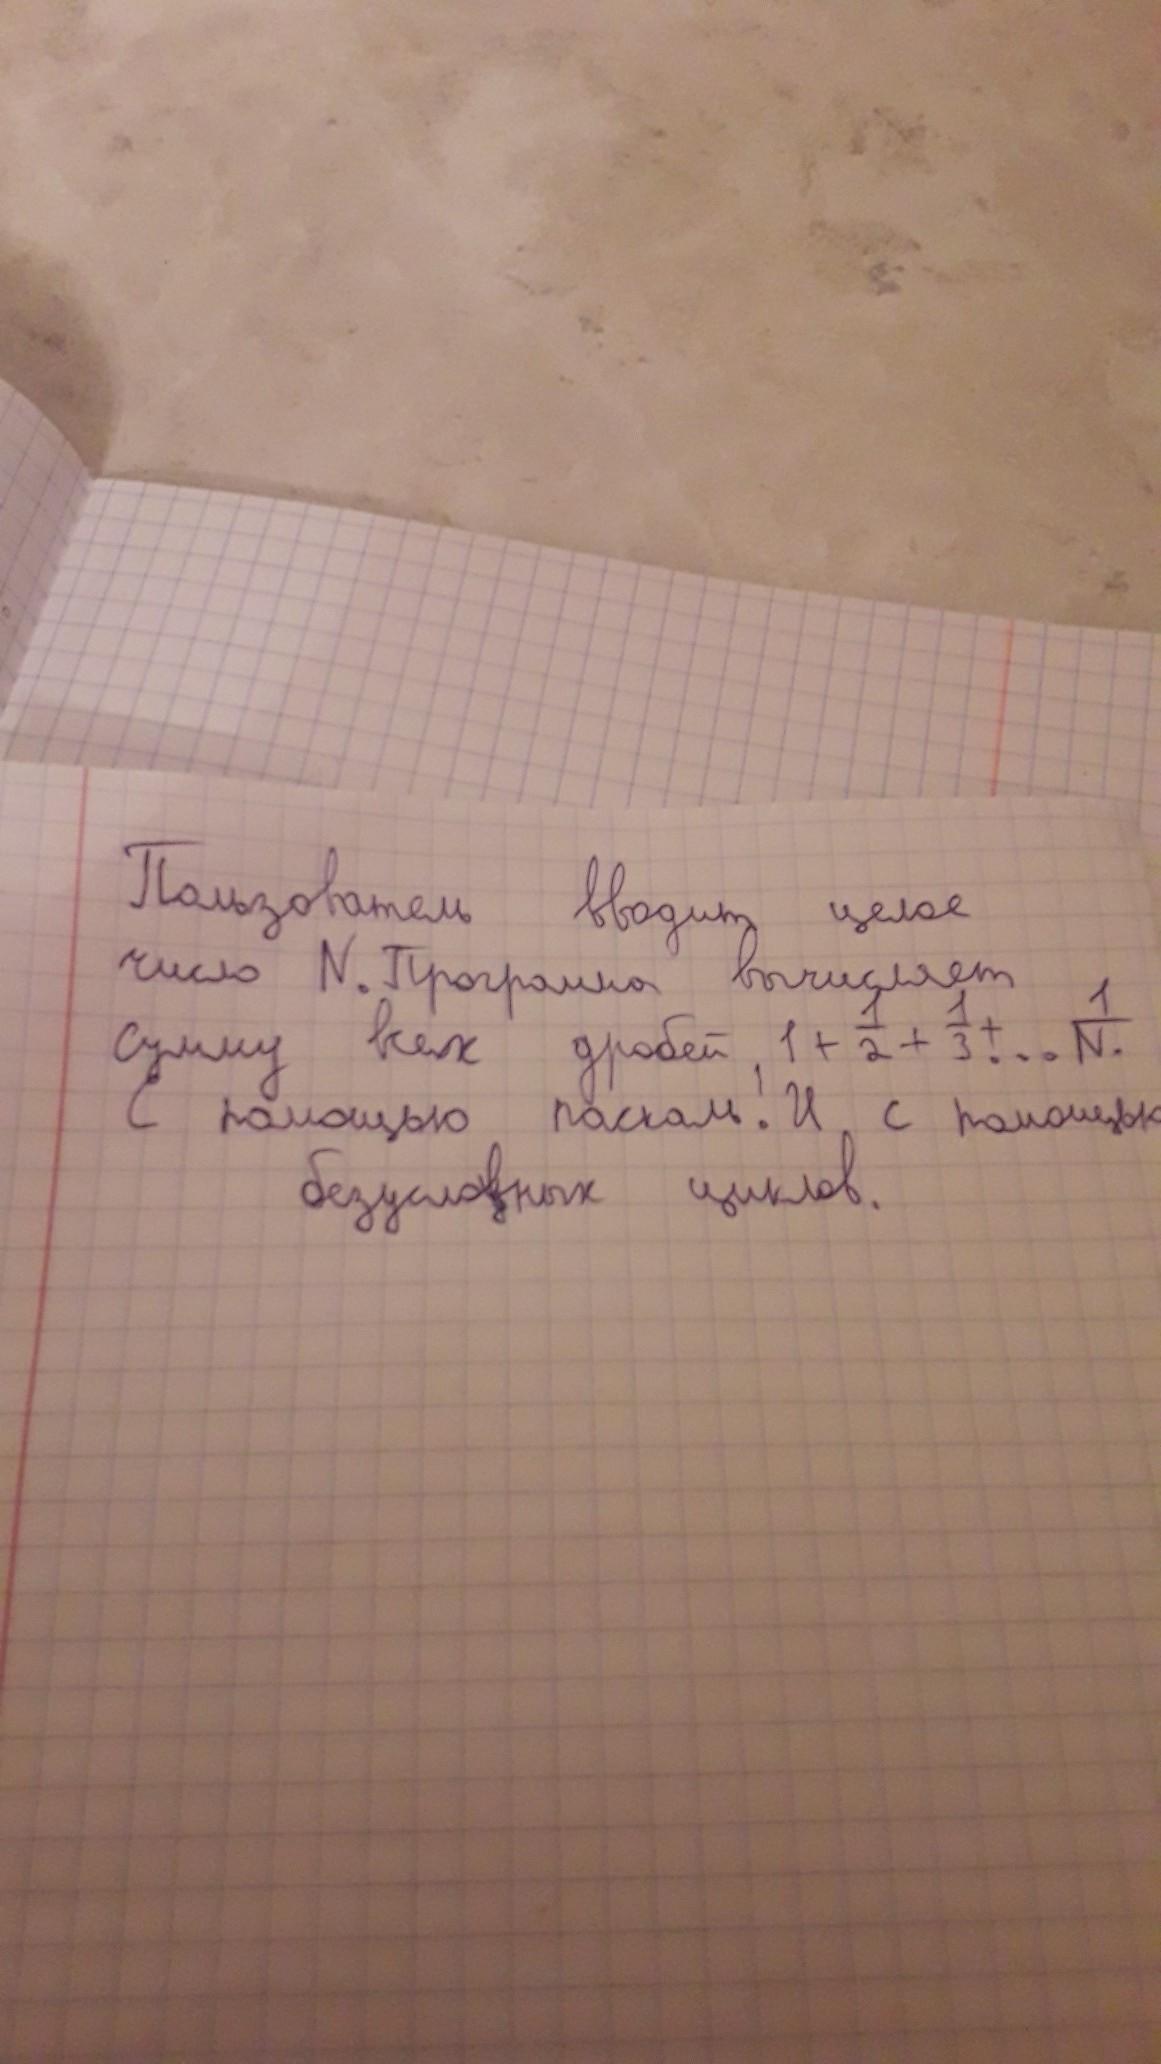 Пользователь вводит целое
число N. Программа вычисляет
сумму всех дробей, 1 + 1/2 + 1/3 + ... 1/N.
С помощью паскаль! И с помощью
безусловных циклов.